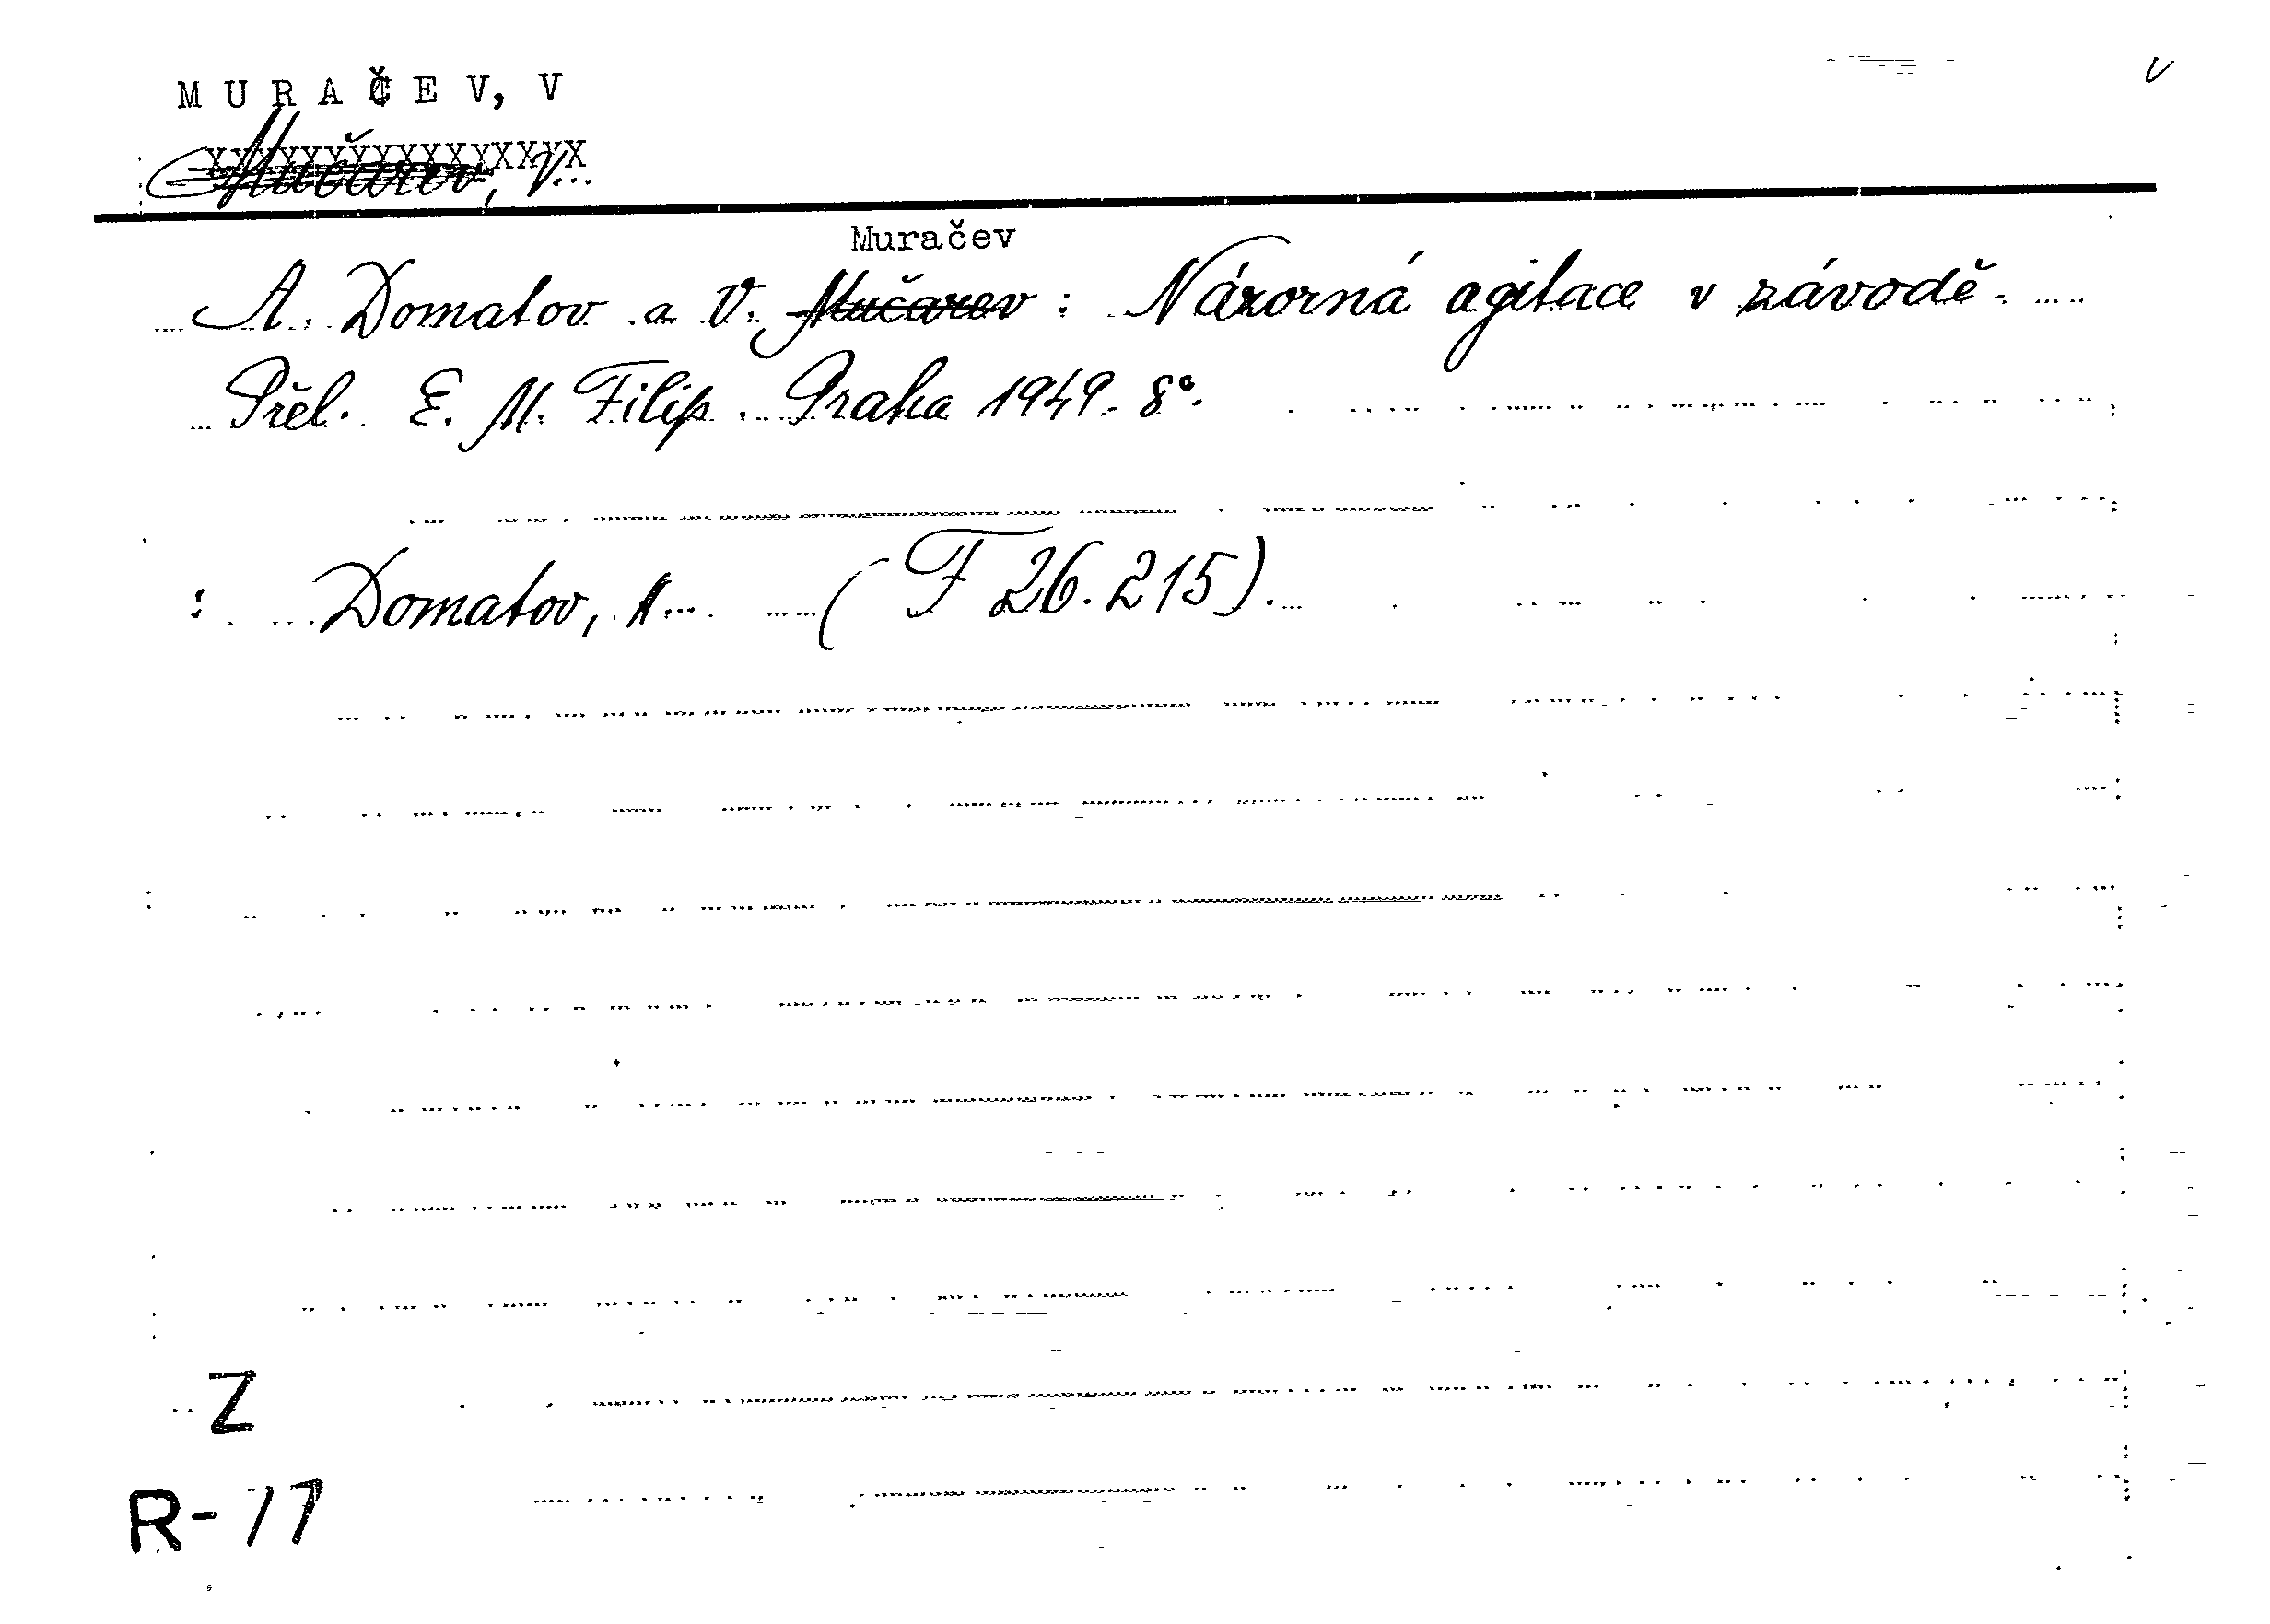 MURAČEV, V
Mučarev, V...
Muračev
A. Domatov a V. Mučarev : Názorná agitace v závodě.
Přel. E. M. Filip. Praha 1949. 8°.
: Domatov, A... (F 26.215).
Z
R-77